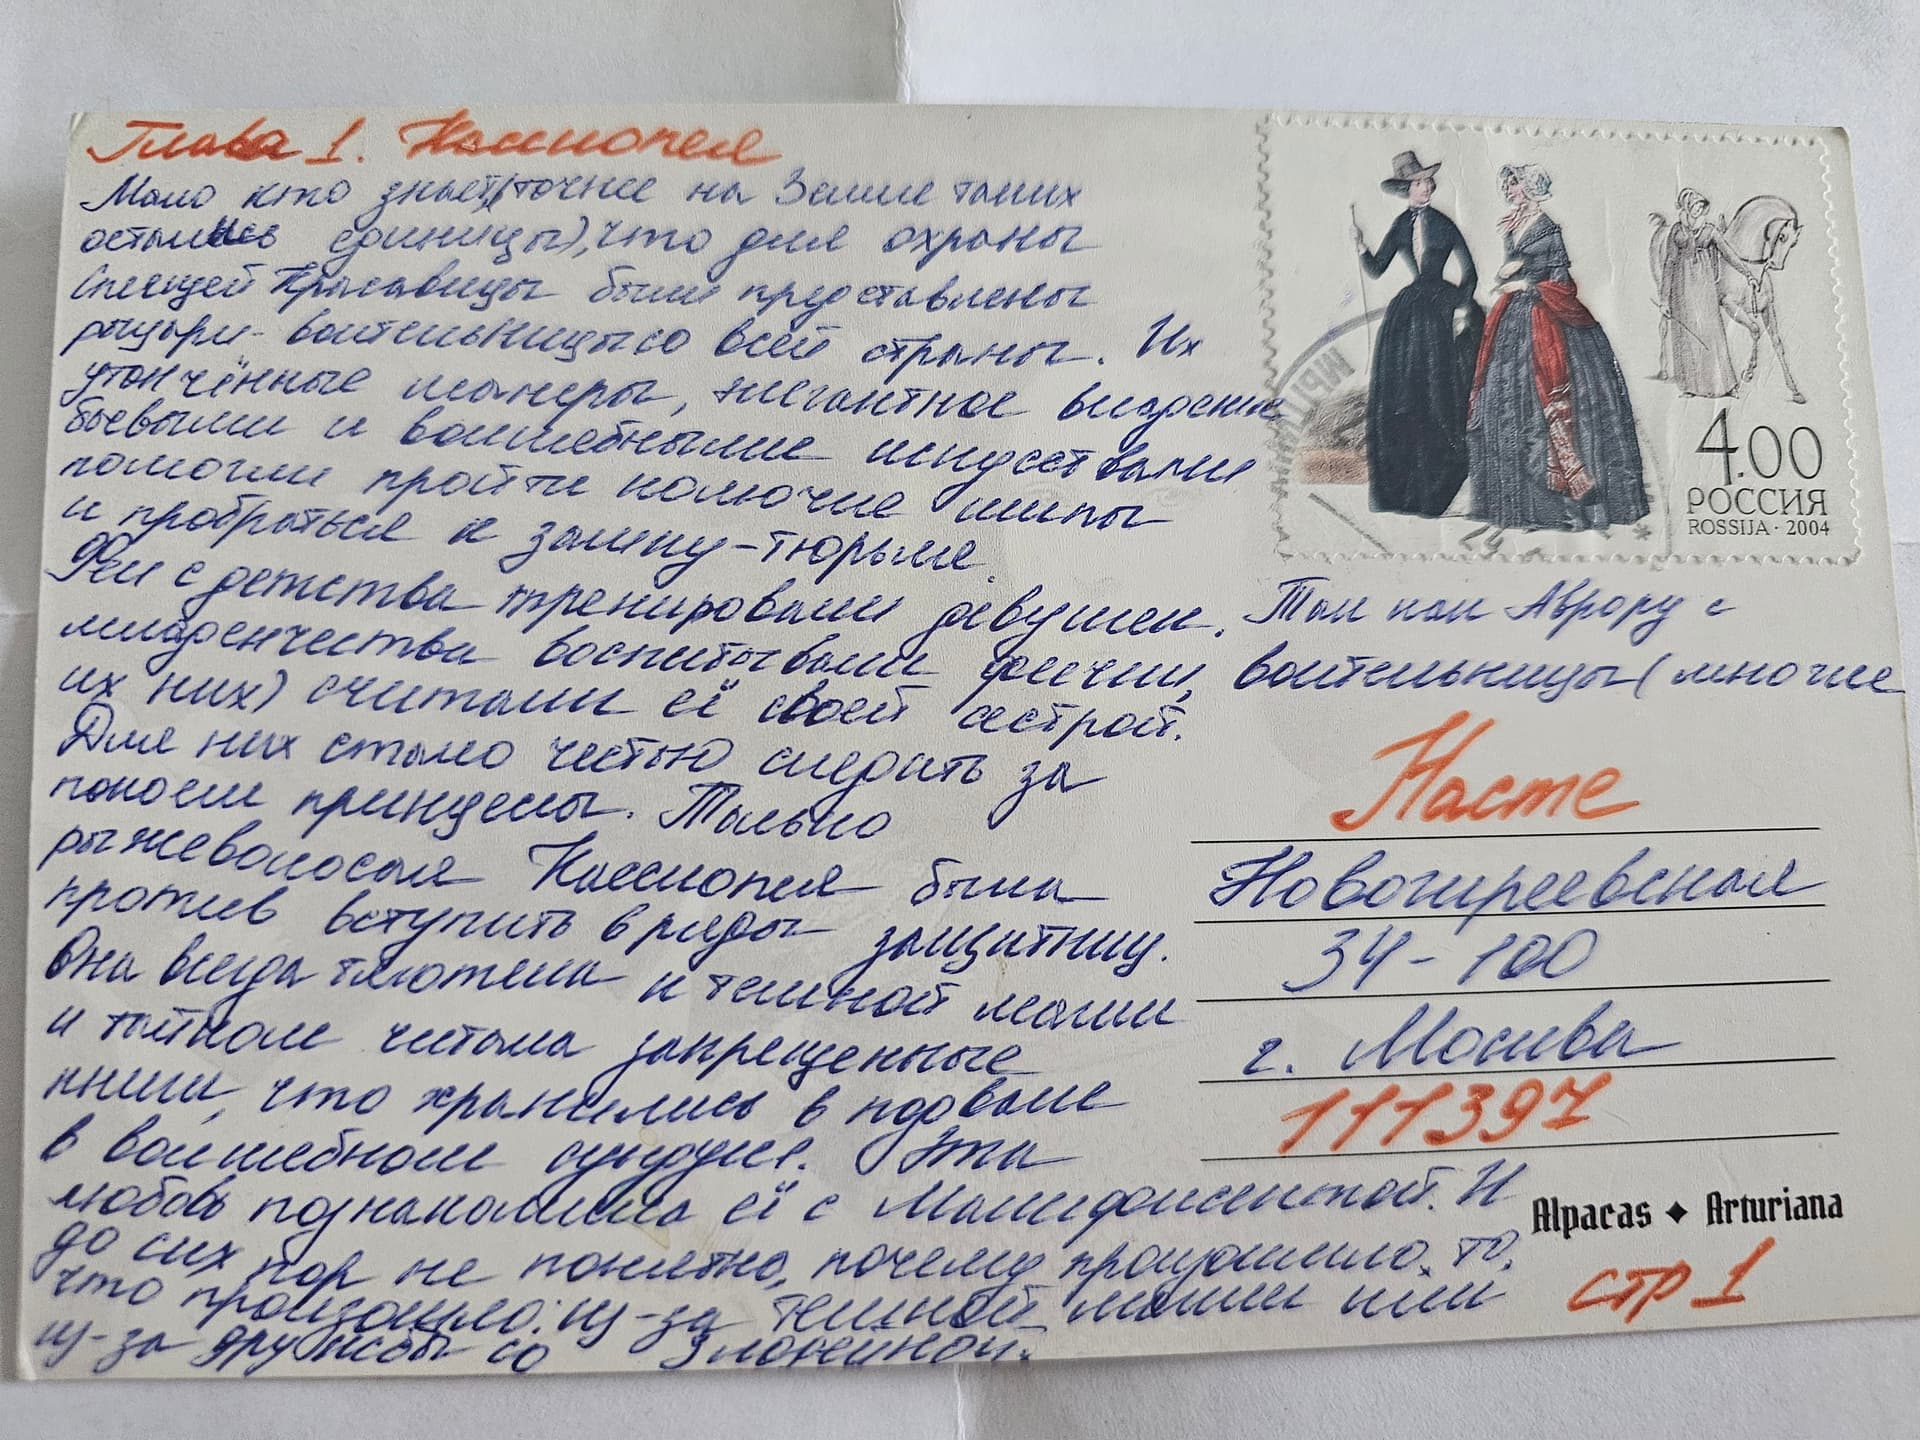 Глава 1. Кассиопея
Мало кто знает (точнее на Земле таких
остались единицы), что для охраны
Спящей Красавицы были представлены
рыцари-воительницы со всей страны. Их
утончённые манеры, элегантное владение
боевыми и волшебными искусствами
помогли пройти колючие шипы
и пробраться к замку-тюрьме.
Феи с детства тренировали девушек. Так как Аврору с
младенчества воспитывали феечки, воительницы (многие
их них) считали её своей сестрой.
Для них стало честью следить за
покоем принцессы. Только
рыжеволосая Кассиопея была
против вступить в ряды защитниц.
Она всегда тяготела к темной магии
и тайком читала запрещенные
книги, что хранились в подвале
в волшебном сундуке. Эта
любовь познакомила её с Малифисентой. И
до сих пор не понятно, почему произошло то,
что произошло: из-за темной магии или
из-за дружбы со Злодейкой.
4.00
РОССИЯ
ROSSIJA · 2004
Насте
Новогиреевская
34-100
г. Москва
111397
Alpacas ♦ Arturiana
стр 1